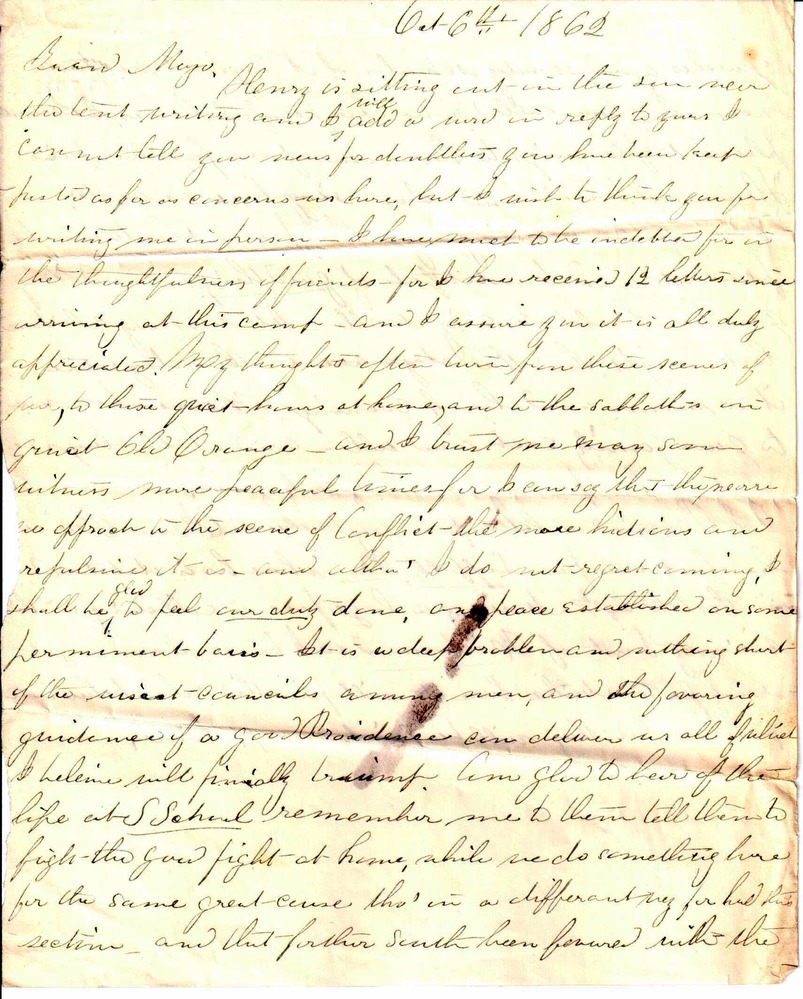 Oct 6th 1862
Friend Mayo.
Henry is sitting out in the sun near
the tent writing and I will add a word in reply to yours I
cannot tell you news for doubtless you have been kept
posted as far as concerns us here, but I wish to thank you for
writing me in person - I have much to be indebted for in
the thoughtfulness of friends - for I have received 12 letters since
arriving at this camp - and I assure you it is all duly
appreciated. My thoughts often turn from these scenes of
war, to those quiet hours at home, and to the sabbaths in
quiet Old Orange - and I trust we may soon
witness more peaceful times for I can say that the nearer
we approch to the scene of Conflict the more hidious and
repulsive it is - and altho' I do not regret coming, I
shall be glad to feel our duty done, and peace established on some
perminent basis - It is a deep problem and nothing short
of the wisest councils among men, and the favoring
guidance of a good Providence can deliver us all of which
I beleive will finially triump. Am glad to hear of the
life at S School remember me to them tell them to
figh the good fight at home, while we do something here
for the same great cause tho' in a differant way for had this
section - and that farther South been favored with the